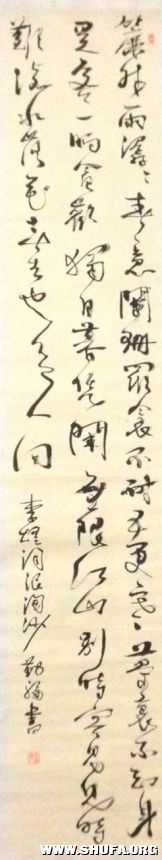 簾外雨潺々春意闌珊羅衾不耐五更寒夢裏不知身
是客一晌貪歡獨自暮凭闌無限江山別時容易見時
難流水落花春去也天上人间
李煜詞浪淘沙 書
WWW.SHUFA.ORG